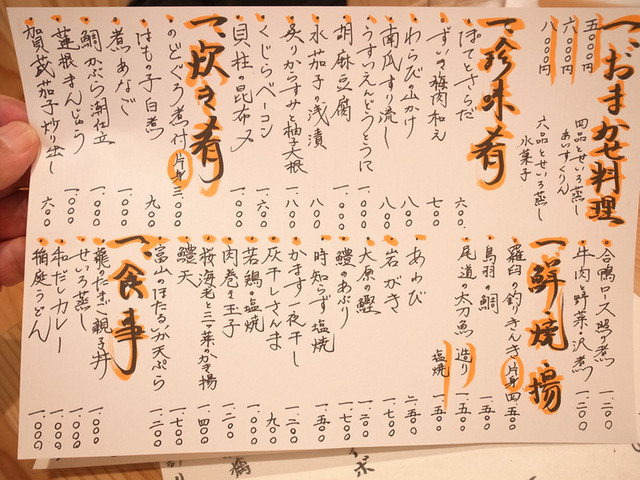 一、おまかせ料理
五〇〇〇円
六〇〇〇円
八〇〇〇円
四品とせいろ蒸し
あいすくりん
六品とせいろ蒸し
水菓子
一、珍味肴
ぽてとさらだ 六〇〇
ずいき梅肉和え 七〇〇
わらびの山かけ 八〇〇
南瓜すり流し 八〇〇
うすいえんどうとうふ 一、〇〇〇
胡麻豆腐 一、〇〇〇
水茄子の浅漬 八〇〇
炙りからすみと柚子大根 一、八〇〇
くじらベーコン 一、六〇〇
貝柱の昆布〆 一、〇〇〇
一、炊き肴
のどぐろ煮付 片身 三、〇〇〇
はもの子白煮 九〇〇
煮あなご 一、〇〇〇
鯛かぶら潮仕立 一、〇〇〇
蓮根まんじゅう 一、〇〇〇
賀茂茄子炒り出し 六〇〇
合鴨ロース照り煮 一、二〇〇
牛肉と野菜・沢煮 一、二〇〇
一、鮮 焼 揚
羅臼の釣りきんき 片身 四、五〇〇
鳥羽の鯛 一、五〇〇
尾道の太刀魚 造り 一、五〇〇
塩焼 一、五〇〇
あわび 二、五〇〇
岩がき 一、七〇〇
大原の鰹 一、二〇〇
鱧のあぶり 一、七〇〇
時知らず塩焼 一、五〇〇
かます一夜干し 一、二〇〇
灰干しさんま 九〇〇
若鶏の塩焼 一、〇〇〇
肉巻き玉子 一、二〇〇
桜海老と三ツ葉のかき揚 一、四〇〇
鱧天 一、七〇〇
富山のほたるいか天ぷら 一、二〇〇
一、食事
龍のたまご親子丼 一、〇〇〇
せいろ蒸し 一、〇〇〇
和だしカレー 一、〇〇〇
稲庭うどん 一、〇〇〇